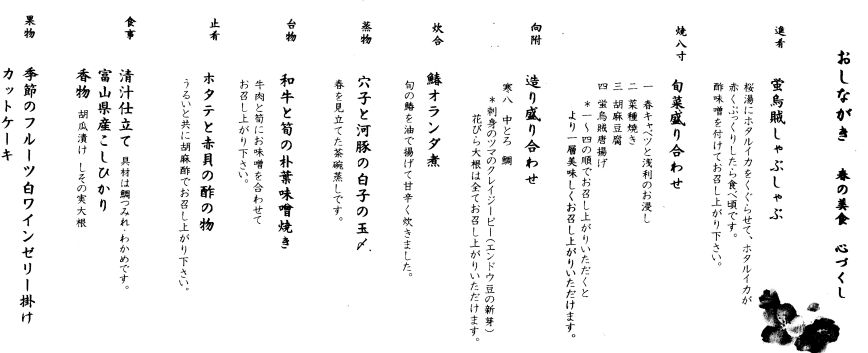 おしながき 春の美食 心づくし
進肴
蛍烏賊しゃぶしゃぶ
桜湯にホタルイカをくぐらせて、ホタルイカが
赤くぷっくりしたら食べ頃です。
酢味噌を付けてお召し上がり下さい。
焼八寸
旬菜盛り合わせ
一 春キャベツと浅利のお浸し
二 菜種焼き
三 胡麻豆腐
四 蛍烏賊唐揚げ
*一〜四の順でお召し上がりいただくと
より一層美味しくお召し上がりいただけます。
向附
造り盛り合わせ
寒八 中とろ 鯛
*刺身のツマのクレイジーピー(エンドウ豆の新芽)
花びら大根は全てお召し上がりいただけます。
炊合
鰆オランダ煮
旬の鰆を油で揚げて甘辛く炊きました。
蒸物
穴子と河豚の白子の玉〆
春を見立てた茶碗蒸しです。
台物
和牛と筍の朴葉味噌焼き
牛肉と筍にお味噌を合わせて
お召し上がり下さい。
止肴
ホタテと赤貝の酢の物
うるいと共に胡麻酢でお召し上がり下さい。
食事
清汁仕立て 具材は鯛つみれ・わかめです。
富山県産こしひかり
香物 胡瓜漬け しその実大根
果物
季節のフルーツ白ワインゼリー掛け
カットケーキ